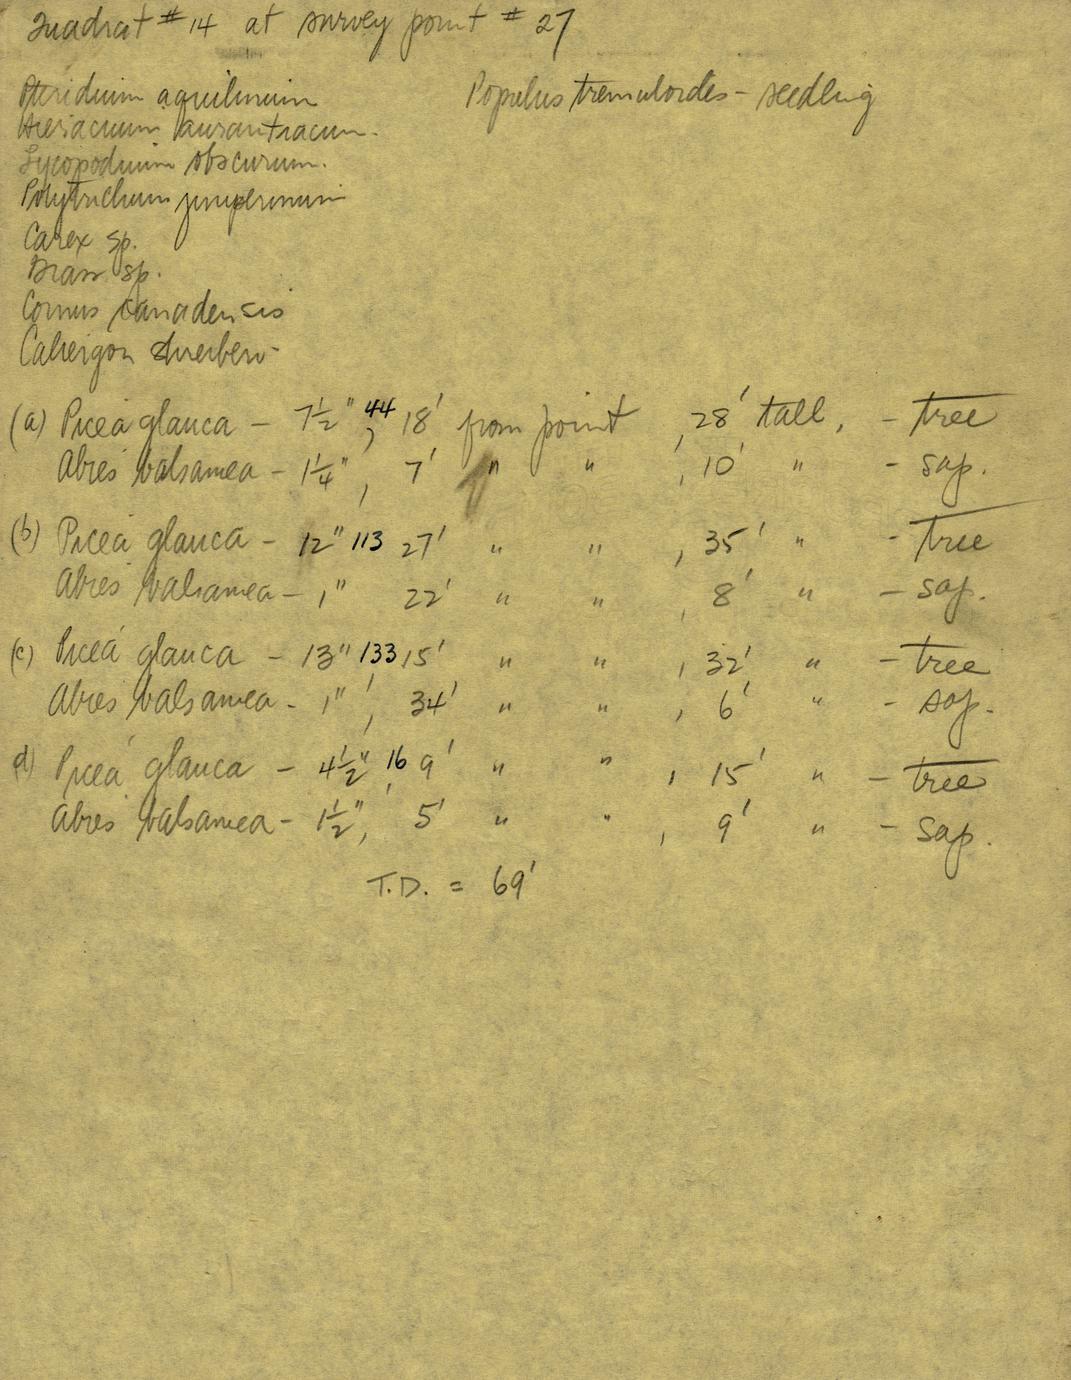 Quadrat #14 at survey point #27
Pteridium aquilinum
Populus tremuloides - seedling
Hieriacium aurantiacum.
Lycopodium obscurum.
Polytrichum juniperinum
Carex sp.
Grass sp.
Cornus canadensis
Caliergon shreberi
(a) Picea glauca - 7½" 44, 18' from point, 28' tall, - tree
Abies balsamea - 1¼", 7' " ", 10' " - sap.
(b) Picea glauca - 12" 113 27' " ", 35' " - tree
Abies balsamea - 1" 22' " ", 8' " - sap.
(c) Picea glauca - 13" 133, 15' " ", 32' " - tree
Abies balsamea - 1", 34' " ", 6' " - sap.
d) Picea glauca - 4½", 16 9' " ", 15' " - tree
Abies balsamea - 1½", 5' " ", 9' " - sap.
T.D. = 69'